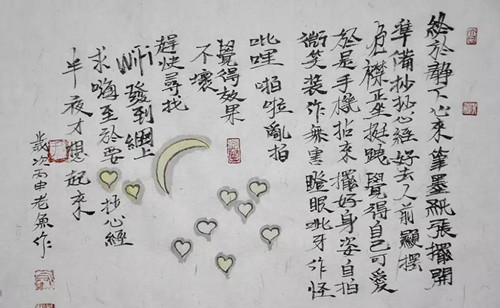 終於靜下心來筆墨紙張攤開
準備抄抄心經好去人前顯擺
危襟正坐挺覺得自己可愛
於是手機拈來擺好身姿自拍
微笑裝作無害瞪眼呲牙作怪
吡哩啪啦亂拍
覺得效果
不壞
趕快尋找
wifi發到網上
求嗨至於要抄心經
半夜才想起來
歲次丙申老魚作